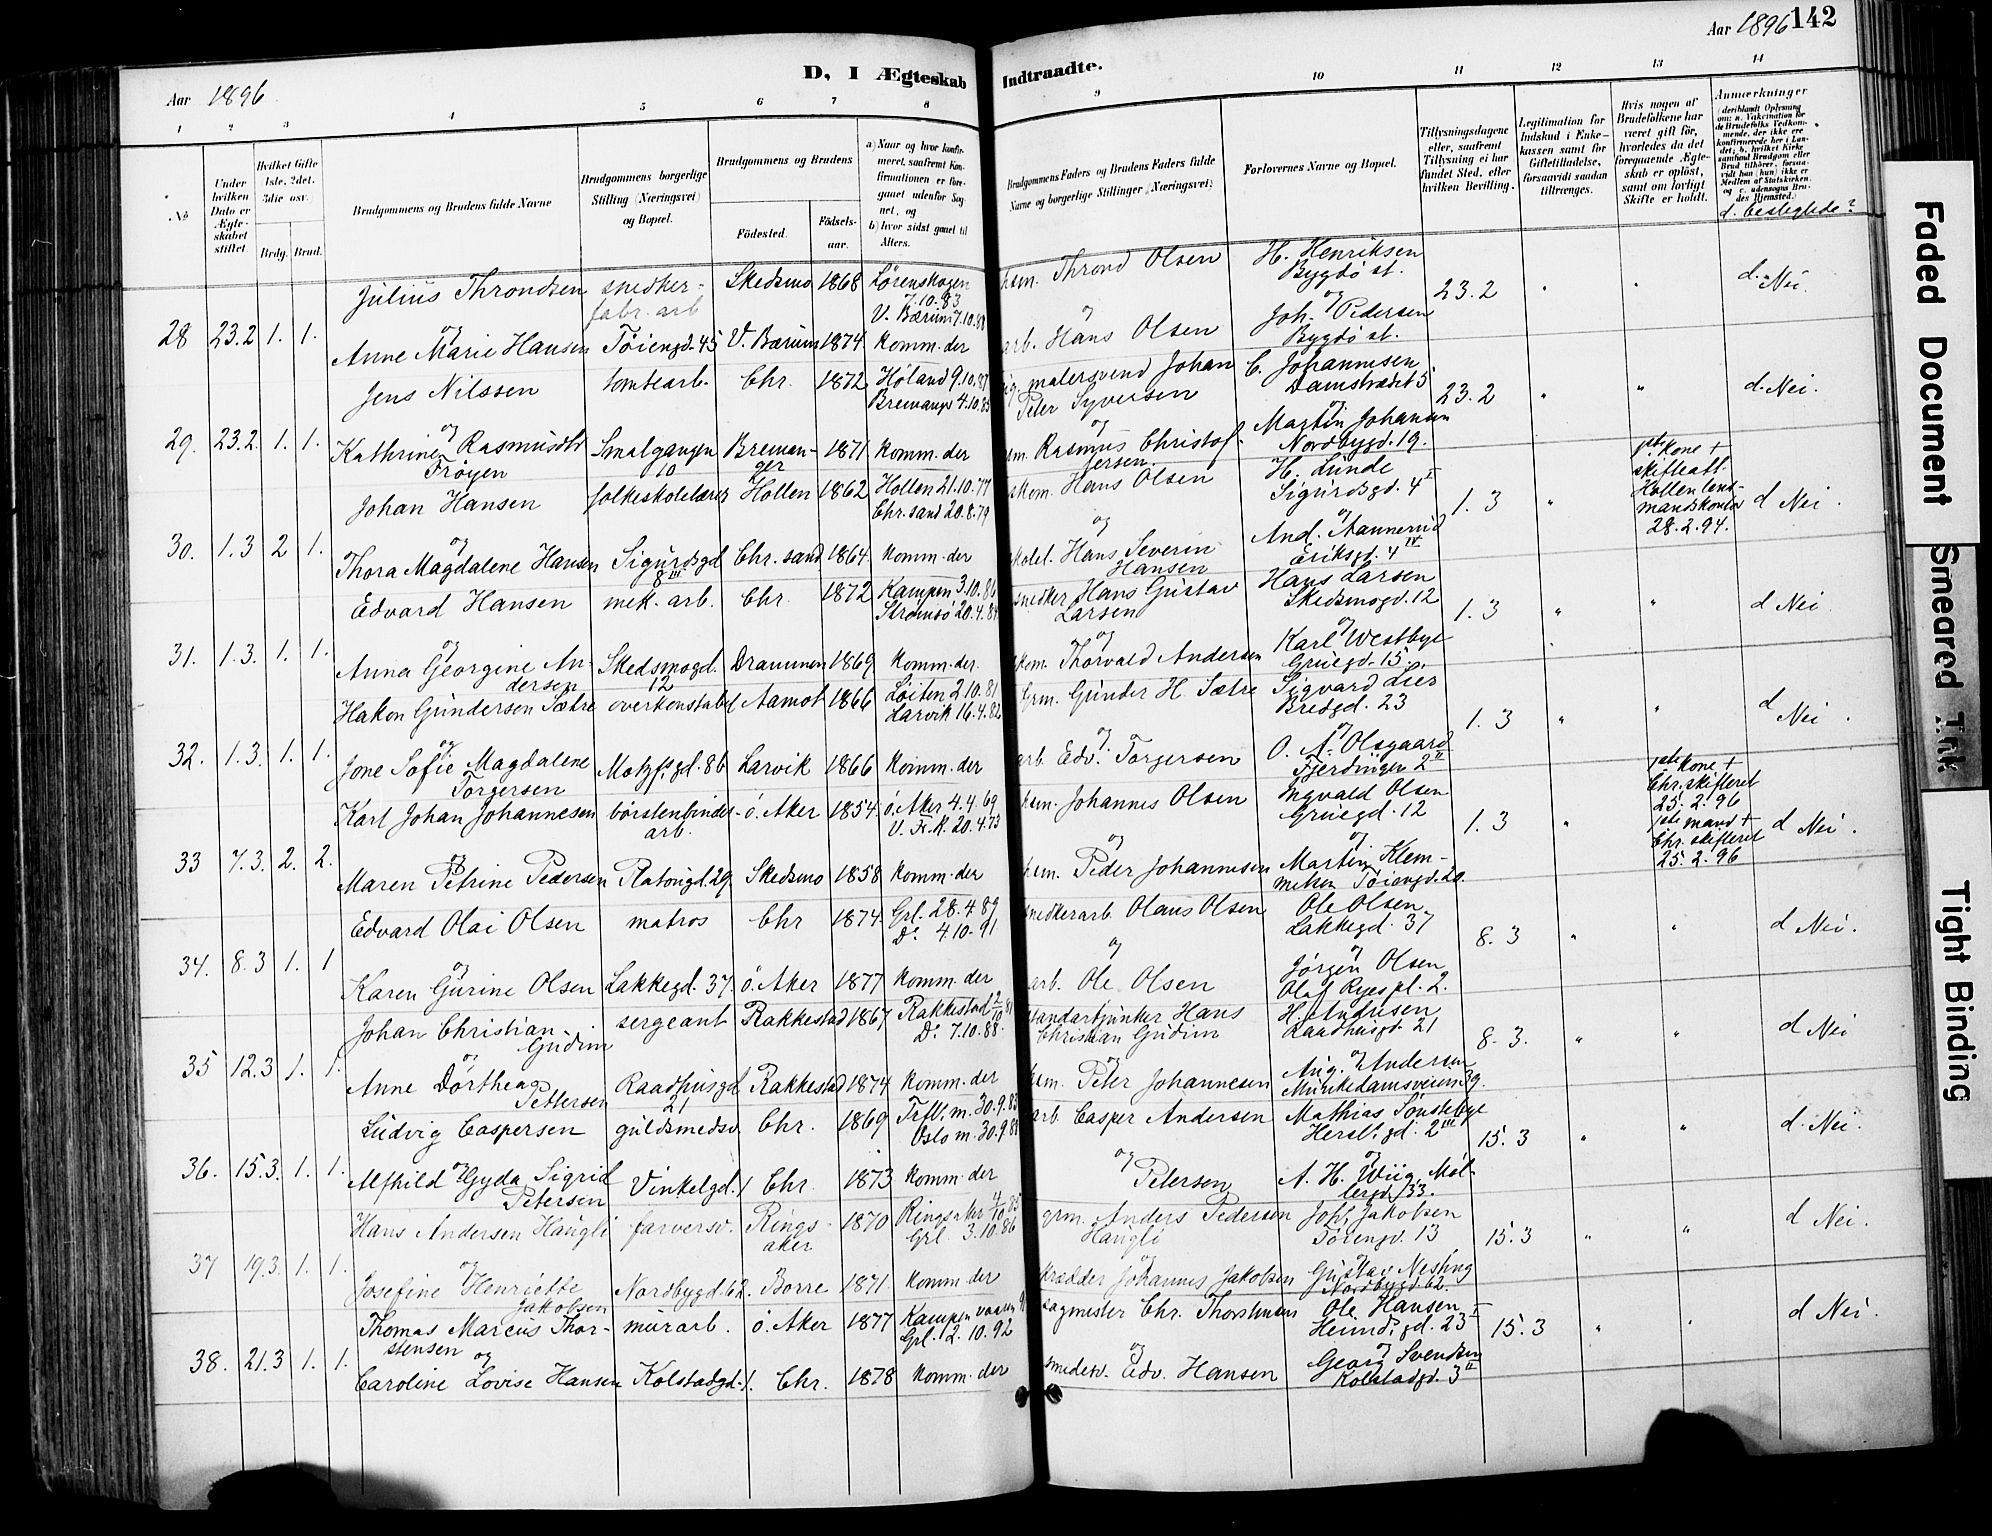 Aar 1896
D, I Ægteskab Indtraadte.
Aar 1896 142
1 2 3 4 5 6 7 8 9 10 11 12 13 14
No
Under hvilken Dato er Ægteskabet stiftet.
Hvilket Gifte 1ste, 2det, 3die osv.
Brdg. Brud.
Brudgommens og Brudens fulde Navne
Brudgommens borgerlige Stilling (Næringsvei) og Bopæl.
Brudgommens og Brudens
Fødested. Fødselsaar.
a) Naar og hvor konfirmeret, saafremt Konfirmationen er foregaaet udenfor Sognet, og
b) hvor sidst gaaet til Alters.
Brudgommens Faders og Brudens Faders fulde Navne og borgerlige Stillinger (Næringsvei)
Forlovernes Navne og Bopæl.
Tillysningsdagene eller, saafremt Tillysning ei har fundet Sted, efter hvilken Bevilling.
Legitimation for Indskud i Enkekassen samt for Giftetilladelse, forsaavidt saadan tiltrænges.
Hvis nogen af Brudefolkene har været gift før, hvorledes da det foregaaende Ægteskab er opløst, samt om lovligt Skifte er holdt.
Anmærkninger
d. beslegtede?
28 23.2 1. 1.
Julius Throndsen snedker- fabr. arb Skedsmo 1868 Lørenskogen 7.10.83 V. Bærum 7.10.88
og
Anne Marie Hansen Tøiengd. 45 V. Bærum 1874 komm. der
hsm. Thrond Olsen og arb. Hans Olsen
H. Henriksen Bygdø st. og Joh. Pedersen Bygdø st.
23.2 " " d. Nei
29. 23.2. 1. 1.
Jens Nilssen tomtearb. Chr. 1872 Høland 9.10.87 Bremanger 4.10.85
og
Kathrine Rasmusdtr Frøyen Smalgangen 10 Bremanger 1871 komm. der
malersvend Johan Peter Syversen og Rasmus Christofersen
C. Johannesen Damstrædet 5 og Martin Johansen Nordbygd. 19.
23.2 " " d. Nei.
30. 1.3 2 1.
Johan Hansen folkeskolelærer Hollen 1862 Hollen 21.10.77 Chr.sand 20.8.79
og
Thora Magdalene Hansen Sigurdsgd 8 III Chr.sand 1864. komm. der
Hans Olsen og Hans Severin Hansen
H. Lunde Sigurdsgd. 4 I og And. Aannerud Eriksgd. 4 IV
1.3 " 1ste kone + skifteatt. Hollen lensmandskontor 28.2.94. d Nei.
31. 1.3. 1. 1.
Edvard Hansen mek. arb. Chr. 1872 Kampen 3.10.86 Strømsø 20.4.84
og
Anna Georgine Andersen Skedsmogd. 12 Drammen 1869 komm. der.
snedker Hans Gustav Larsen og Thorvald Andersen
Hans Larsen Skedsmogd. 12 og Karl Westbye Grüegd. 15.
1.3 " " d Nei.
32. 1.3. 1. 1.
Hakon Gundersen Sætre overkonstabel Aamot 1866 Løiten 2.10.81 Larvik 16.4.82
og
Jone Sofie Magdalene Torgersen Motzf. gd. 8b Larvik 1866 komm. der
Grm. Gunder H. Sætre og arb. Edv. Torgersen
Sigvard Lies Bredgd. 23 og O. N. Olsgaard Fjerdingen 2 II
1.3 " " d Nei.
33 7.3. 2. 2.
Karl Johan Johannesen børstenbinder- arb. ö. Aker 1854. ö. Aker 4.4.69 V. Fr. K. 20.4.73
og
Maren Petrine Pedersen Platougd. 29. Skedsmo 1858 komm. der
hsm. Johannes Olsen og hsm. Peder Johannesen
Ingvald Olsen Grüegd. 12 og Martin Klemmetsen Tøiengd. 20
1.3 " 1ste kone + Chr. skifteret 25.2.96 1ste mand + Chr. skifteret 25.2.96 d Nei.
34. 8.3 1. 1
Edvard Olai Olsen matros Chr 1874 Grl. 28.4.89 Do. 4.10.91
og
Karen Gurine Olsen Lakkegd. 37. ö. Aker 1877 komm. der
snedkerarb. Olaus Olsen og arb. Ole Olsen
Ole Olsen Lakkegd. 37 og Jørgen Olsen Olaf Ryes pl. 2.
8.3 " " d Nei.
35 12.3 1. 1.
Johan Christian Gudim sergeant Rakkestad 1867 Rakkestad 2/10 81 Do. 7.10.88.
og
Anne Dorthea Pettersen Raadhusgd 21 Rakkestad 1874 komm. der
standartjunker Hans Christian Gudim og hsm. Peter Johannesen
H. Andresen Raadhusgd. 21 og Aug. Andersen Munkedamsveien 39.
8.3. " " d Nei
36. 15.3. 1. 1.
Ludvig Caspersen guldsmedsv. Chr. 1869 Trefl. m. 30.9.83 Oslo m. 30.9.88
og
Alfhild Gyda Sigrid Petersen Vinkelgd. 1 Chr. 1873 komm. der
arb. Casper Andersen og Petersen
Mathias Sønstebye Hersl. gd. 2 III og A. H. Wiig, Møllergd. 33.
15.3 " " d. Nei.
37 19.3. 1. 1.
Hans Andersen Haugli farversv. Ringsaker 1870 Ringsaker 4/10 85 Grl. 3.10.86
og
Josefine Henriette Jakobsen Nordbygd. 62. Borre 1871 komm. der
grm. Anders Pedersen Haugli og skrædder Johannes Jakobsen
Joh. Jakobsen Tøiengd. 13 og Gustav Nesting Nordbygd 62.
15.3 " " d Nei.
38. 21.3 1. 1.
Thomas Marcus Thorstensen murarb. ö. Aker 1877 Kampen vaaren Grl. 12.10.92
og
Caroline Lovise Hansen Kolstadgd. 1. Chr. 1878 komm. der
sagmester Chr. Thorstensen og smedesv. Edv. Hansen
Ole Hansen Heimd. gd. 23 I og Georg Svendsen Kolstadgd. 3 II
15.3 " " d Nei.
Faded Document
Smeared Ink
Tight Binding